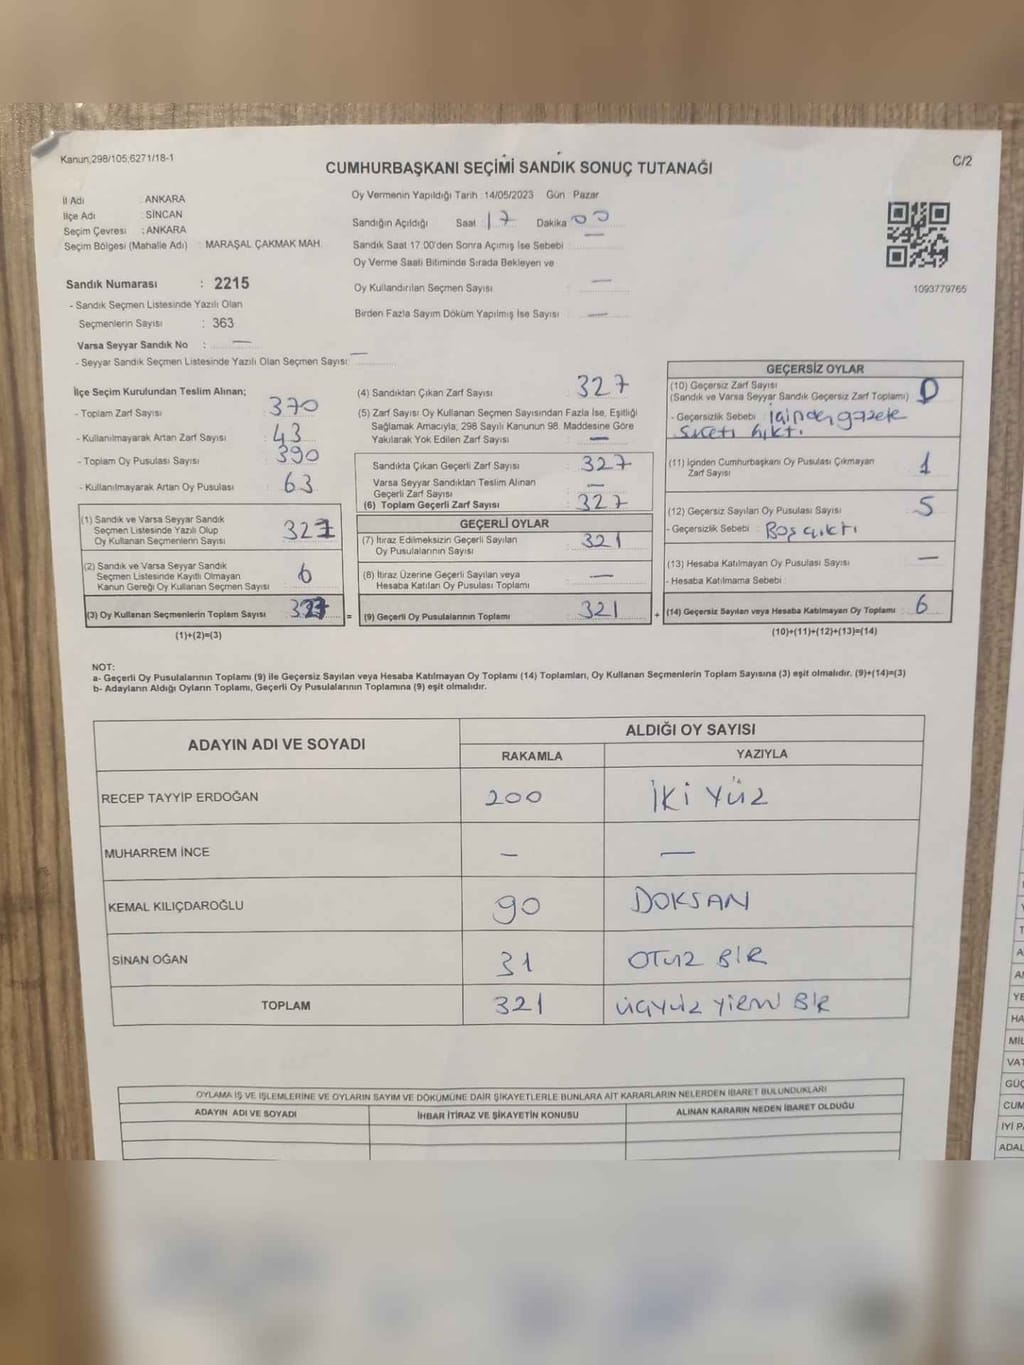 Kanun;298/105;6271/18-1
C/2
CUMHURBAŞKANI SEÇİMİ SANDIK SONUÇ TUTANAĞI
İl Adı : ANKARA
İlçe Adı : SİNCAN
Seçim Çevresi : ANKARA
Seçim Bölgesi (Mahalle Adı) : MARAŞAL ÇAKMAK MAH.
Sandık Numarası : 2215
- Sandık Seçmen Listesinde Yazılı Olan
Seçmenlerin Sayısı : 363
Varsa Seyyar Sandık No : —
- Seyyar Sandık Seçmen Listesinde Yazılı Olan Seçmen Sayısı: —
Oy Vermenin Yapıldığı Tarih 14/05/2023 Gün Pazar
Sandığın Açıldığı Saat 17 Dakika 00
Sandık Saat 17.00'den Sonra Açımış İse Sebebi —
Oy Verme Saati Bitiminde Sırada Bekleyen ve
Oy Kullandırılan Seçmen Sayısı —
Birden Fazla Sayım Döküm Yapılmış İse Sayısı —
1093779765
İlçe Seçim Kurulundan Teslim Alınan;
- Toplam Zarf Sayısı 370
- Kullanılmayarak Artan Zarf Sayısı 43
- Toplam Oy Pusulası Sayısı 390
- Kullanılmayarak Artan Oy Pusulası 63
(1) Sandık ve Varsa Seyyar Sandık
Seçmen Listesinde Yazılı Olup
Oy Kullanan Seçmenlerin Sayısı 321
(2) Sandık ve Varsa Seyyar Sandık
Seçmen Listesinde Kayıtlı Olmayan
Kanun Gereği Oy Kullanan Seçmen Sayısı 6
(3) Oy Kullanan Seçmenlerin Toplam Sayısı 327 =
(1)+(2)=(3)
(4) Sandıktan Çıkan Zarf Sayısı 327
(5) Zarf Sayısı Oy Kullanan Seçmen Sayısından Fazla İse, Eşitliği
Sağlamak Amacıyla; 298 Sayılı Kanunun 98. Maddesine Göre
Yakılarak Yok Edilen Zarf Sayısı —
Sandıkta Çıkan Geçerli Zarf Sayısı 327
Varsa Seyyar Sandıktan Teslim Alınan
Geçerli Zarf Sayısı —
(6) Toplam Geçerli Zarf Sayısı 327
GEÇERLİ OYLAR
(7) İtiraz Edilmeksizin Geçerli Sayılan
Oy Pusulalarının Sayısı 321
(8) İtiraz Üzerine Geçerli Sayılan veya
Hesaba Katılan Oy Pusulası Toplamı —
(9) Geçerli Oy Pusulalarının Toplamı 321 +
GEÇERSİZ OYLAR
(10) Geçersiz Zarf Sayısı
(Sandık ve Varsa Seyyar Sandık Geçersiz Zarf Toplamı) 0
- Geçersizlik Sebebi : İçinden gazete
çıktı.
(11) İçinden Cumhurbaşkanı Oy Pusulası Çıkmayan
Zarf Sayısı 1
(12) Geçersiz Sayılan Oy Pusulası Sayısı 5
- Geçersizlik Sebebi : Boş çıktı
(13) Hesaba Katılmayan Oy Pusulası Sayısı —
- Hesaba Katılmama Sebebi :
(14) Geçersiz Sayılan veya Hesaba Katılmayan Oy Toplamı 6
(10)+(11)+(12)+(13)=(14)
NOT:
a- Geçerli Oy Pusulalarının Toplamı (9) ile Geçersiz Sayılan veya Hesaba Katılmayan Oy Toplamı (14) Toplamları, Oy Kullanan Seçmenlerin Toplam Sayısına (3) eşit olmalıdır. (9)+(14)=(3)
b- Adayların Aldığı Oyların Toplamı, Geçerli Oy Pusulalarının Toplamına (9) eşit olmalıdır.
ADAYIN ADI VE SOYADI
ALDIĞI OY SAYISI
RAKAMLA YAZIYLA
RECEP TAYYİP ERDOĞAN 200 İKİ YÜZ
MUHARREM İNCE — —
KEMAL KILIÇDAROĞLU 90 DOKSAN
SİNAN OĞAN 31 OTUZ BİR
TOPLAM 321 ÜÇYÜZ YİRMİ BİR
OYLAMA İŞ VE İŞLEMLERİNE VE OYLARIN SAYIM VE DÖKÜMÜNE DAİR ŞİKAYETLERLE BUNLARA AİT KARARLARIN NELERDEN İBARET BULUNDUKLARI
ADAYIN ADI VE SOYADI İHBAR İTİRAZ VE ŞİKAYETİN KONUSU ALINAN KARARIN NEDEN İBARET OLDUĞU
HA
MİL
VAT
GÜÇ
CUM
İYİ P
ADAL